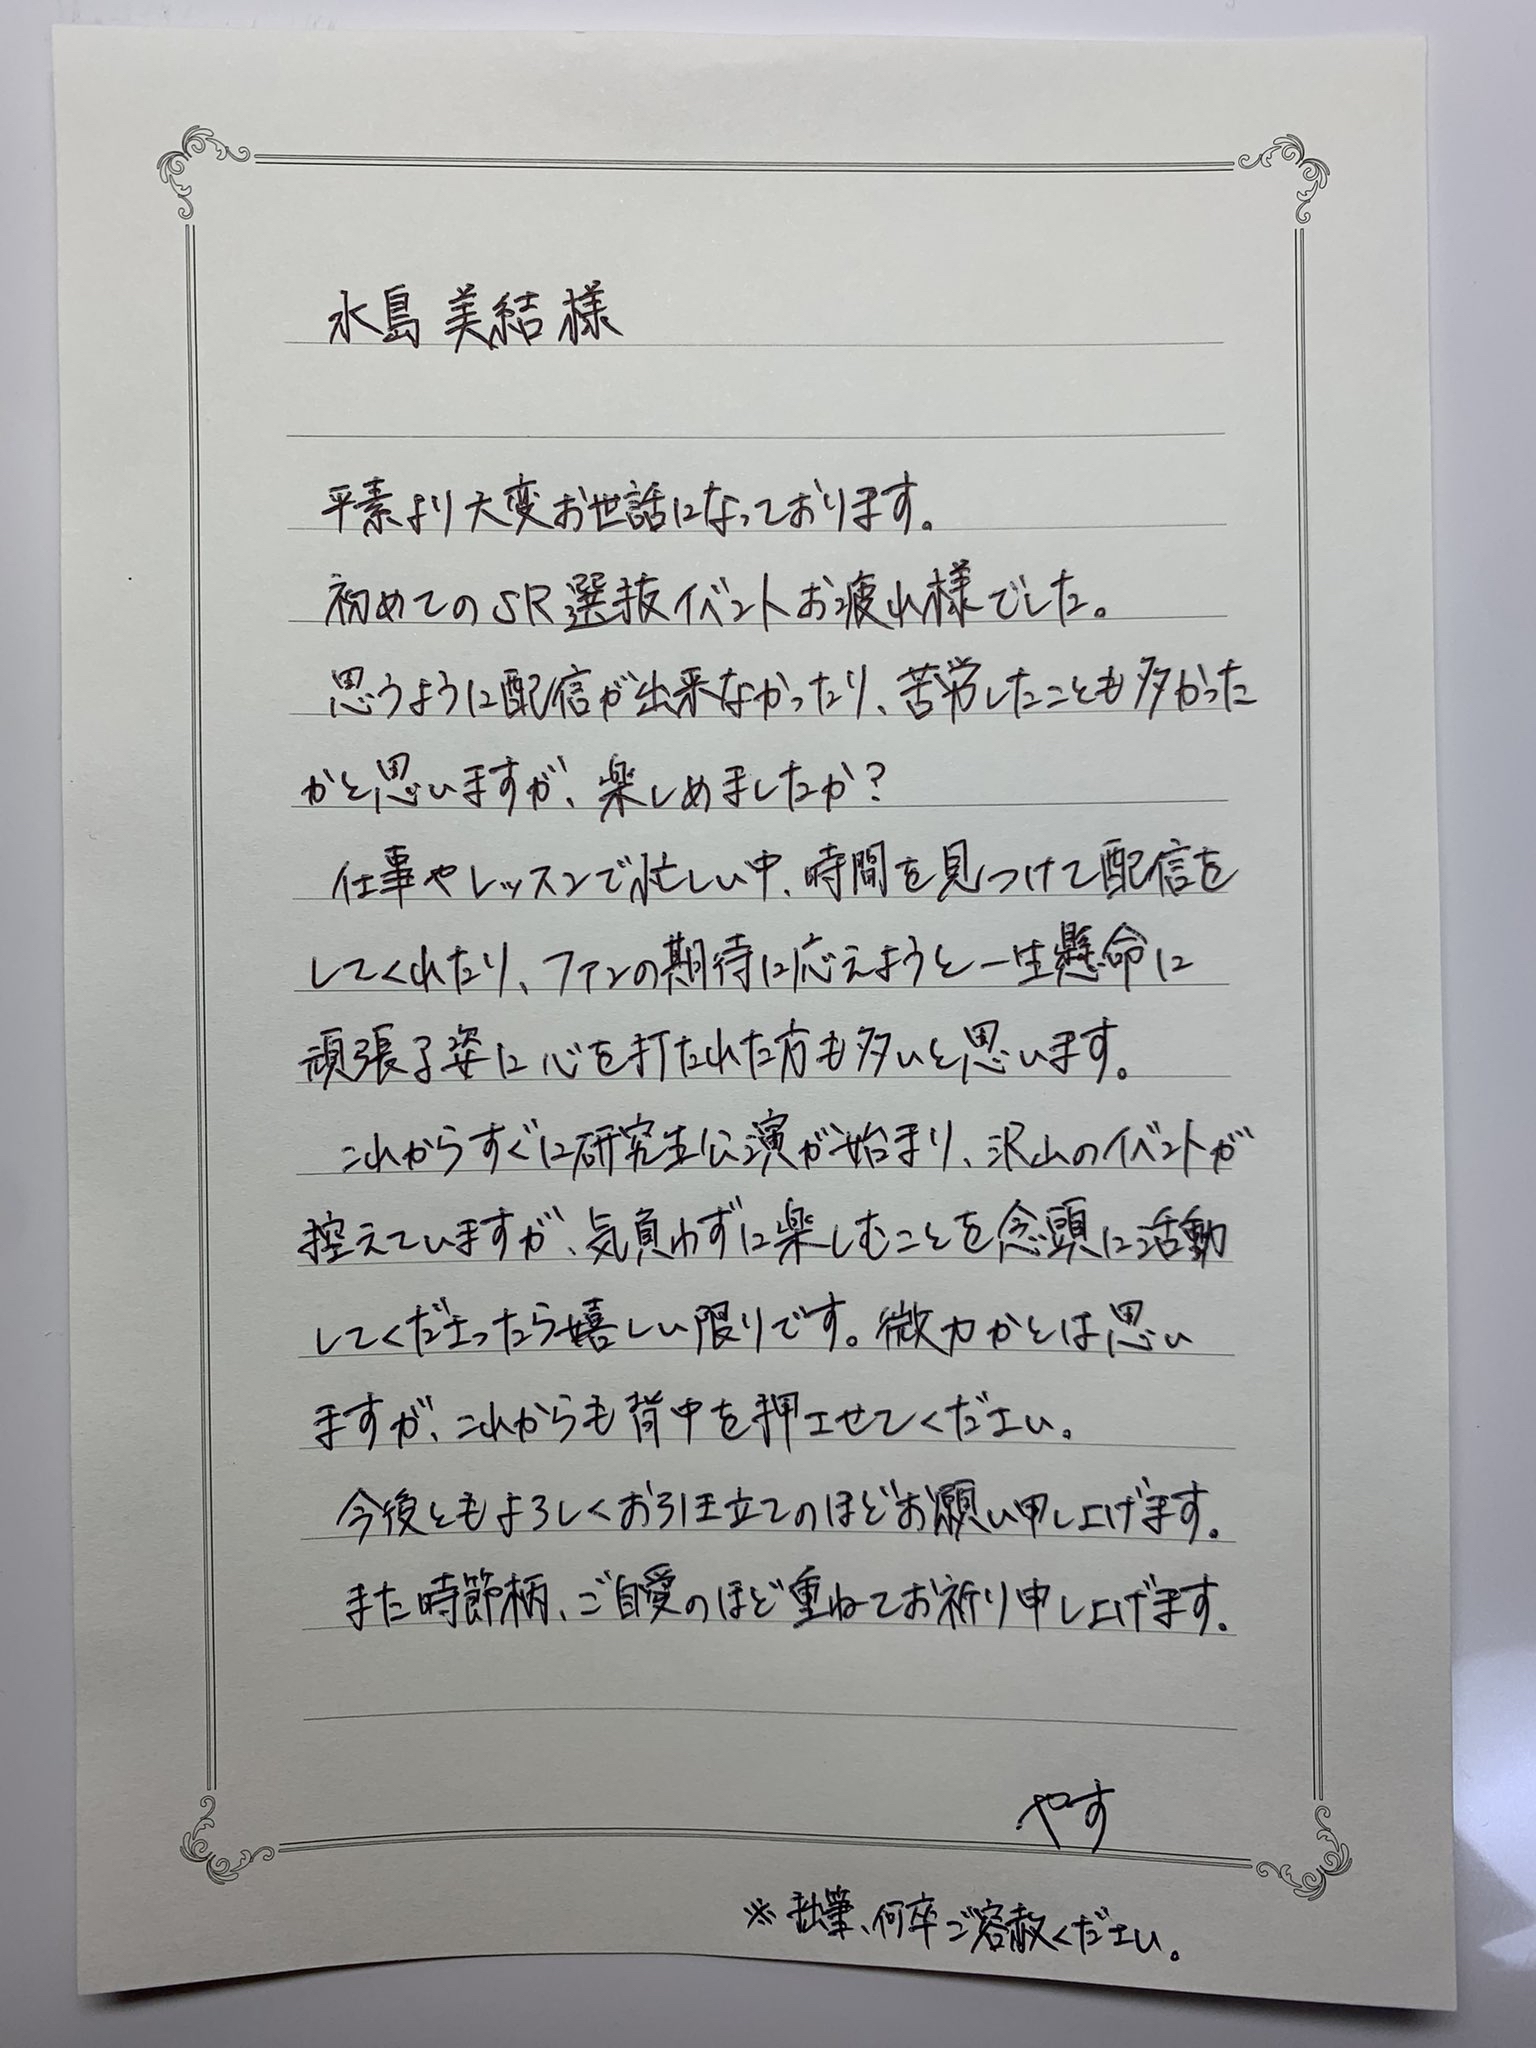 水島 美結 様
平素より大変お世話になっております。
初めてのSR選抜イベントお疲れ様でした。
思うように配信が出来なかったり、苦労したことも多かった
かと思いますが、楽しめましたか？
仕事やレッスンで忙しい中、時間を見つけて配信を
してくれたり、ファンの期待に応えようと一生懸命に
頑張る姿に心を打たれた方も多いと思います。
これからすぐに研究生公演が始まり、沢山のイベントが
控えていますが、気負わずに楽しむことを念頭に活動
してくださったら嬉しい限りです。微力かとは思い
ますが、これからも背中を押させてください。
今後ともよろしくお引き立てのほどお願い申し上げます。
また時節柄、ご自愛のほど重ねてお祈り申し上げます。
やす
※拙筆、何卒ご容赦ください。